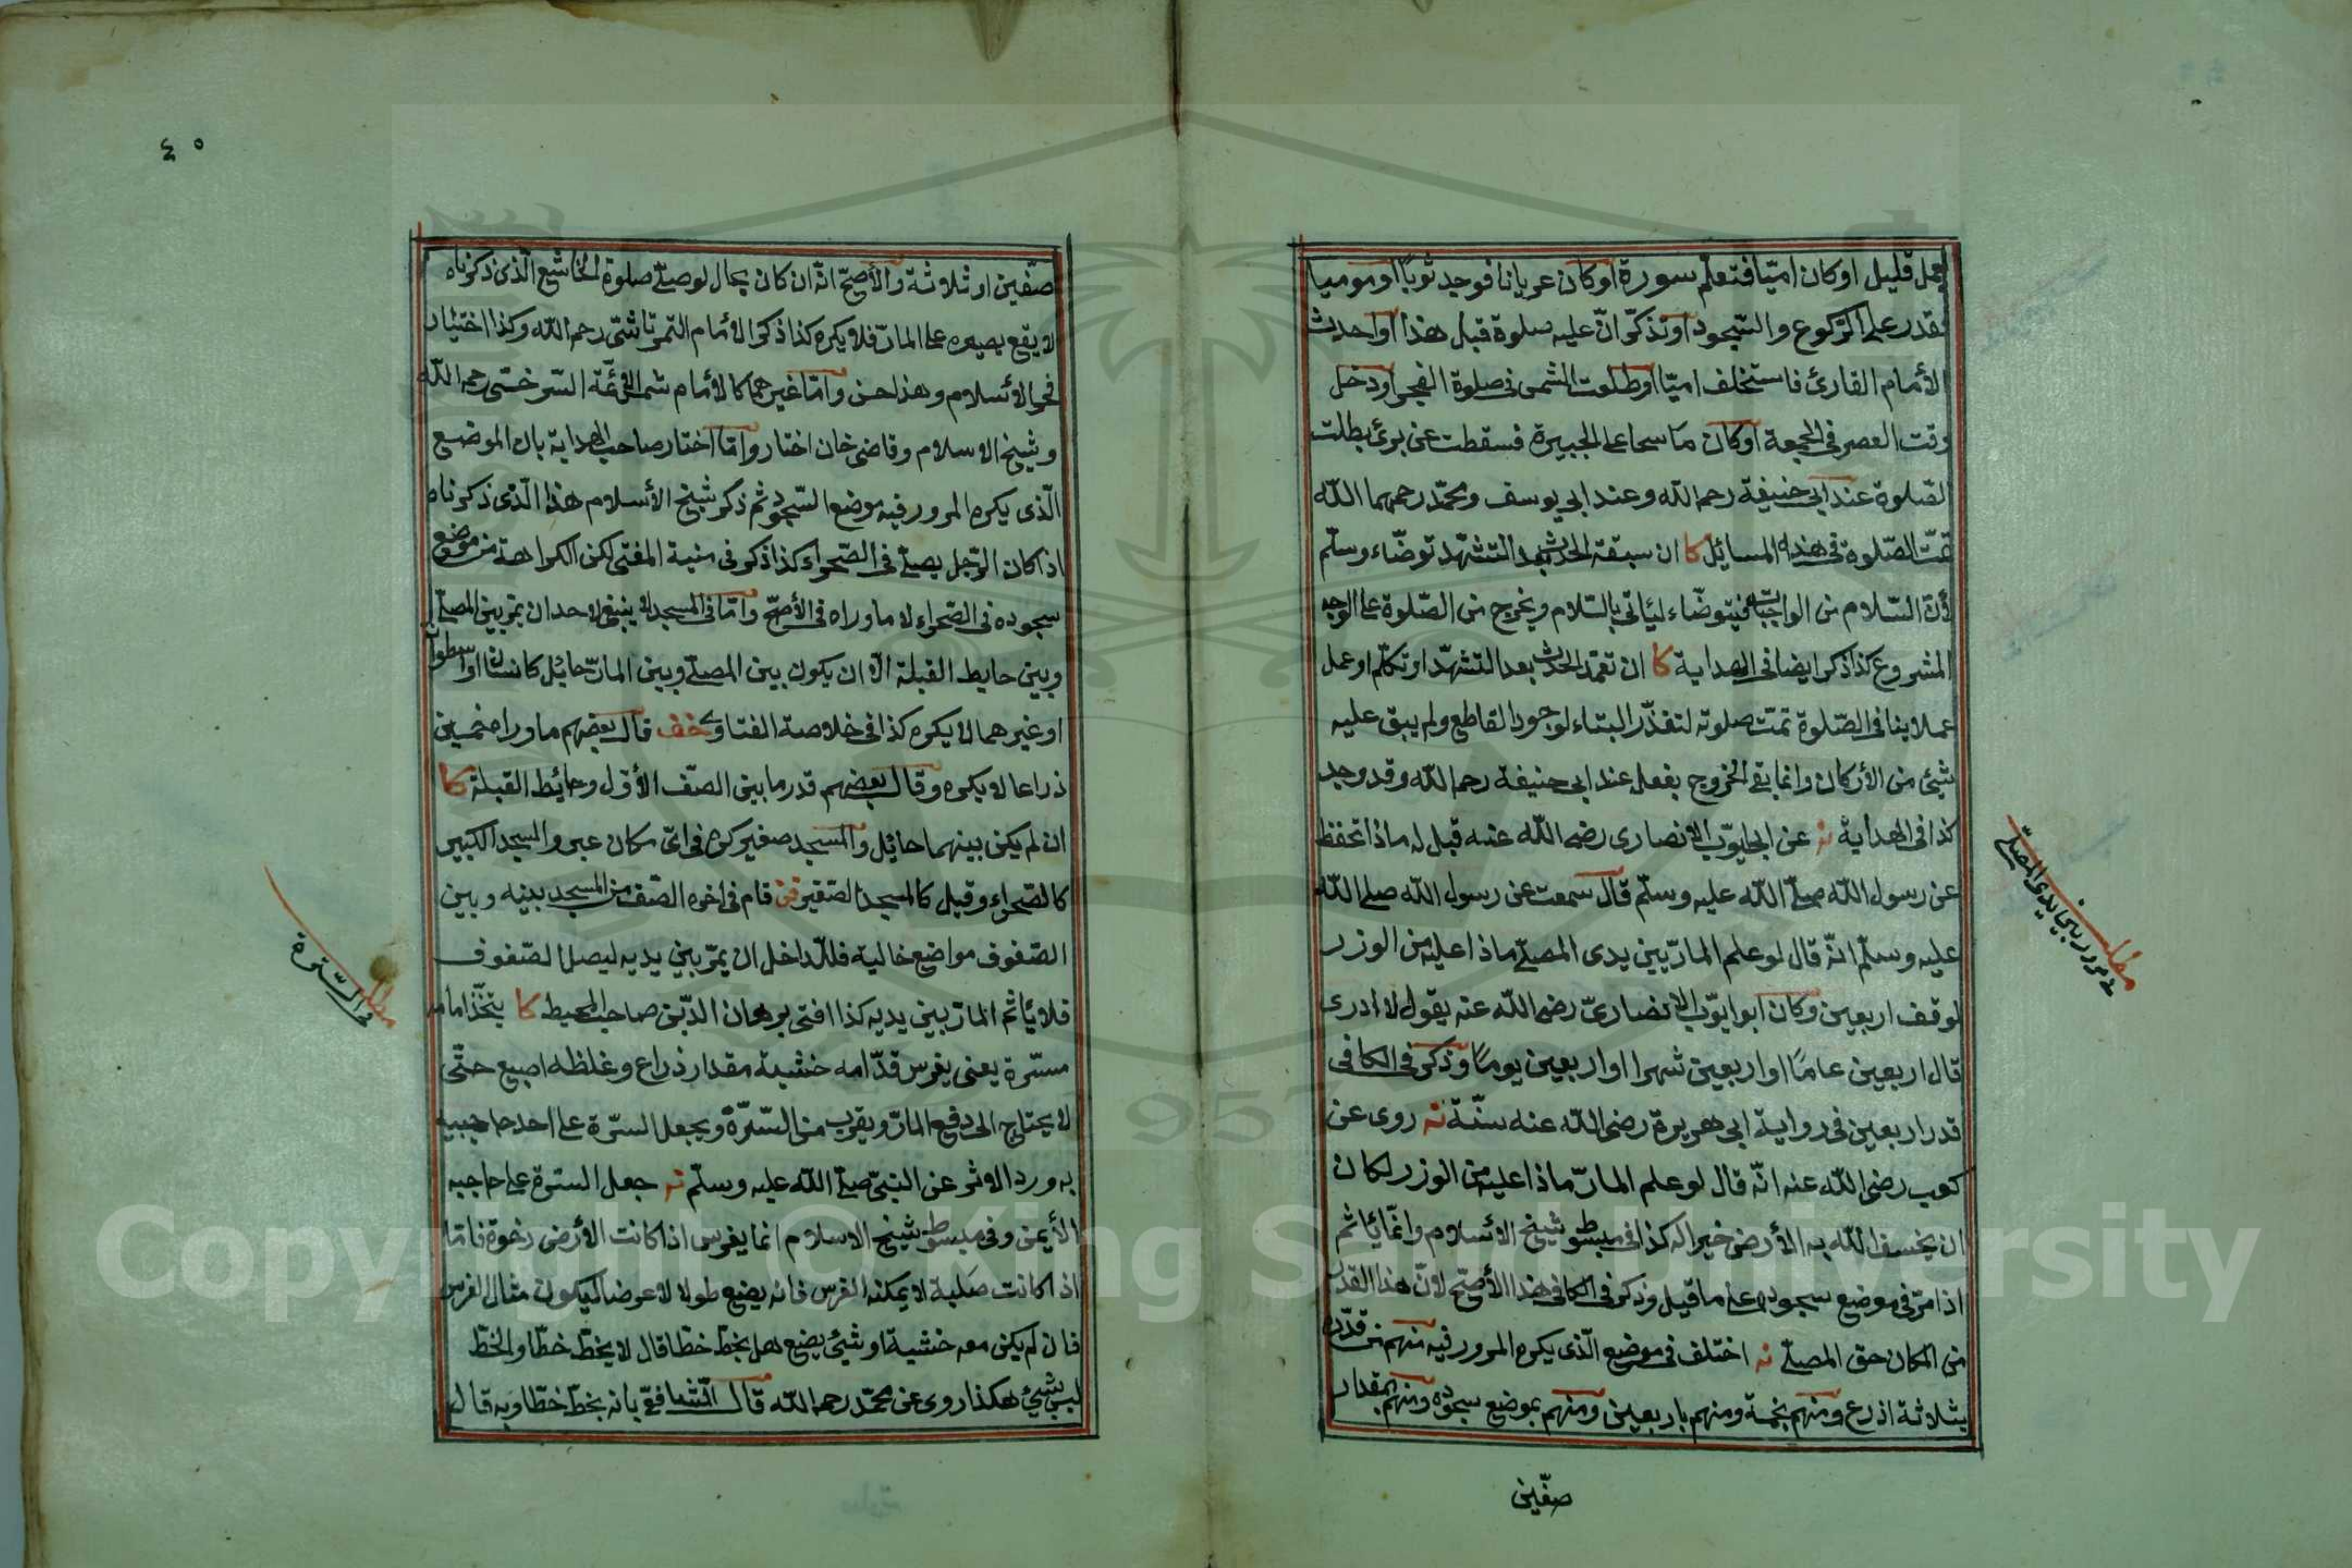 بعمل قليل او كان اميّا فتعلّم سورة او كان عريانا فوجد ثوبًا او موميا
فقدر على الرّكوع والسّجود او تذكّر انّ عليه صلوة قبل هذا او احدث
الأمام القارئ فاستخلف اميّا او طلعت الشمس فى صلوة الفجر او دخل
وقت العصر فى الجمعة او كان ماسحا على الجبيرة فسقطت عن برئ بطلت
الصّلوة عند ابى حنيفة رحمه الله وعند ابى يوسف ومحمّد رحمهما الله
تمّت الصّلوة فى هذه المسائل كا ان سبقة الحدث بعد التشهّد توضّاء وسلّم
لأنّ السّلام من الواجبات فيتوضّاء ليأتى بالسّلام ويخرج من الصّلوة على الوجه
المشروع كذا ذكر ايضا فى الهداية كا ان تعمّد الحدث بعد التشهّد او تكلّم او عمل
عملا ينافى الصّلوة تمّت صلوته لتعذّر البناء لوجود القاطع ولم يبق عليه
شئ من الأركان وانما بقى الخروج بفعله عند ابى حنيفة رحمه الله وقد وجد
كذا فى الهداية نه عن ابى ايوّب الانصارى رضى الله عنه قيل له ماذا تحفظ
عن رسول الله صلّى الله عليه وسلّم قال سمعت عن رسول الله صلى الله
عليه وسلّم انّه قال لو علم المارّ بين يدى المصلّى ماذا عليه من الوزر
لوقف اربعين وكان ابو ايوّب الانصارىّ رضى الله عنه يقول لا ادرى
قال اربعين عامًا او اربعين شهرا او اربعين يومًا وذكر فى الكافى
قدر اربعين فى رواية ابى هريرة رضى الله عنه سنّة نه روى عن
كعب رضى الله عنه انّه قال لو علم المارّ ماذا عليه من الوزر لكان
ان يخسف الله به الأرض خيرا له كذا فى مبسوط شيخ الأسلام وانّما يأثم
اذا مرّ فى موضع سجوده على ما قيل وذكر فى الكافى هذا الأصحّ لأنّ هذا القدر
من المكان حق المصلّى نه اختلف فى موضع الّذى يكره المرور فيه منهم من قدّره
بثلاثة اذرع ومنهم بخمسة ومنهم باربعين ومنهم بموضع سجوده ومنهم بمقدار
صفّين
مطلب
فى مرور بين يدى المصلّى
٤٠
صفّين او ثلاثة والأصحّ انّه ان كان بحال لو صلّى صلوة الخاشع الّذى ذكرناه
لا يقع بصره على المارّ فلا يكره كذا ذكر الأمام التمرتاشىّ رحمه الله وكذا اختيار
فخر الأسلام وهذا حسن وامّا غيرهما كالأمام شمس الأئمّة السّرخسى رحمه الله
وشيخ الاسلام وقاضى خان اختاروا ما اختار صاحب الهداية بان الموضع
الّذى يكره المرور فيه موضع السّجود ثم ذكر شيخ الأسلام هذا الّذى ذكرناه
اذا كان الرّجل يصلّى فى الصّحراء كذا ذكر فى منية المفتى لكن الكراهة من موضع
سجوده فى الصّحراء لا ما وراه فى الأصحّ وامّا فى المسجد لا ينبغى لاحد ان يمرّ بين المصلّى
وبين حايط القبلة الّا ان يكون بين المصلّى وبين المارّ حائل كانسان او اسطوان
او غيرهما لا يكره كذا فى خلاصة الفتاوى خف قال بعضهم ما وراء خمسين
ذراعا لا يكره وقال بعضهم قدر ما بين الصّف الأوّل وحائط القبلة كا
ان لم يكن بينهما حائل والمسجد صغير كره فى اىّ مكان عبر والمسجد الكبير
كالصّحراء وقيل كالمسجد الصّغير فن قام فى اخره الصّف من المسجد بينه وبين
الصّفوف مواضع خالية فللدّاخل ان يمرّ بين يديه ليصل الصّفوف
فلا يأثم المارّ بين يديه كذا افتى برهان الدّين صاحب المحيط كا يتّخذ امامه
سترة يعنى يغرس قدّامه خشبة مقدار ذراع وغلظه اصبع حتّى
لا يحتاج الى دفع المارّ ويقرب من السّترة ويجعل السّترة على احد حاجبيه
به ورد الاثر عن النبىّ صلّى الله عليه وسلّم نه جعل السترة على حاجبه
الأيمن وفى مبسوط شيخ الاسلام انما يغرس اذا كانت الأرض رخوة فامّا
اذا كانت صلبة لا يمكنه الغرس فانه يضع طولا لا عرضا ليكون مثال الغرس
فان لم يكن معه خشبة او شئ يضع هل يخطّ خطّا قال لا يخطّ خطّا والخطّ
ليس بشئ هكذا روى عن محمّد رحمه الله قال الشافعىّ بانه يخطّ خطّا وبه قال
مطلب
فى السّترة
Copyright © King Saud University
957